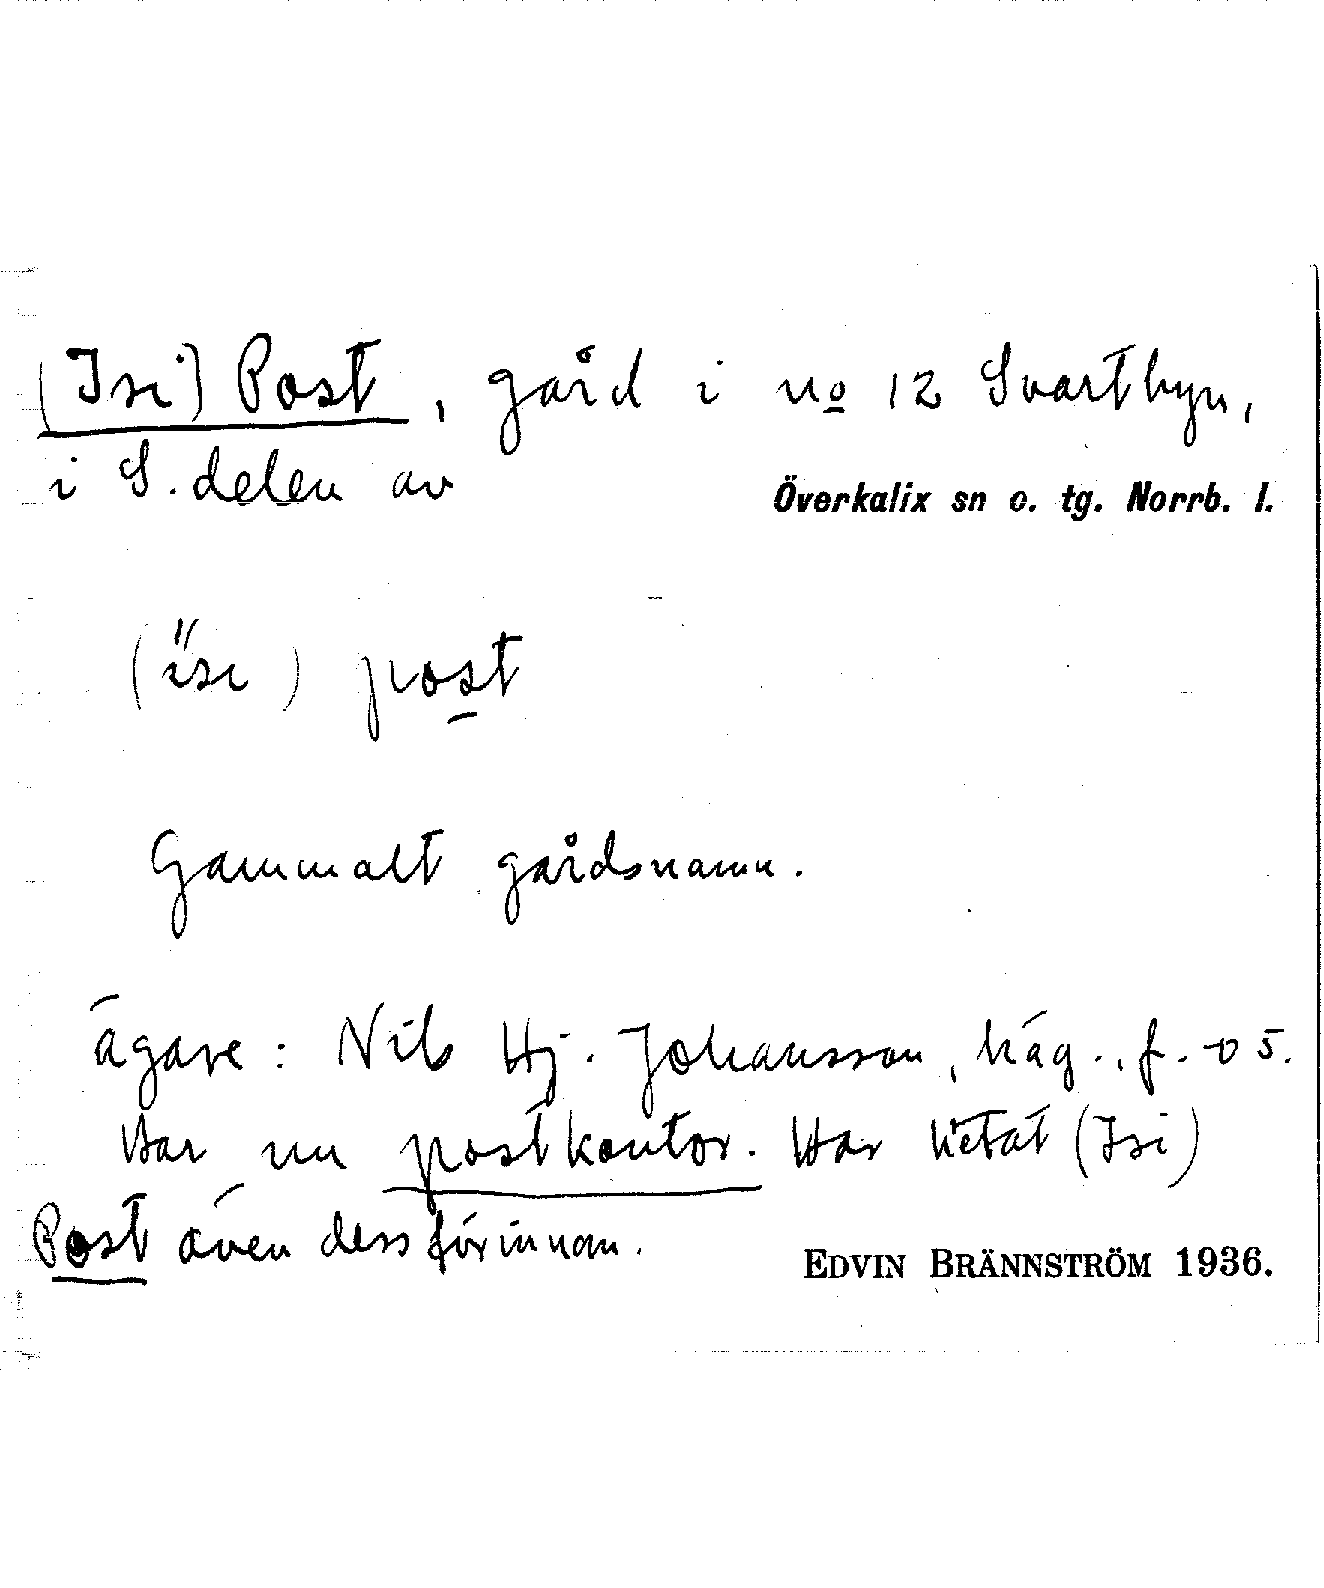 (Isi) Post, gård i no 12 Svartbyn,
i S. delen av
Överkalix sn o. tg. Norrb. l.
(isi) post
Gammalt gårdsnamn.
ägare: Nils Hj. Johansson, häg., f. -05.
Har nu postkontor. Har hetat (Isi)
Post även dessförinnan.
EDVIN BRÄNNSTRÖM 1936.